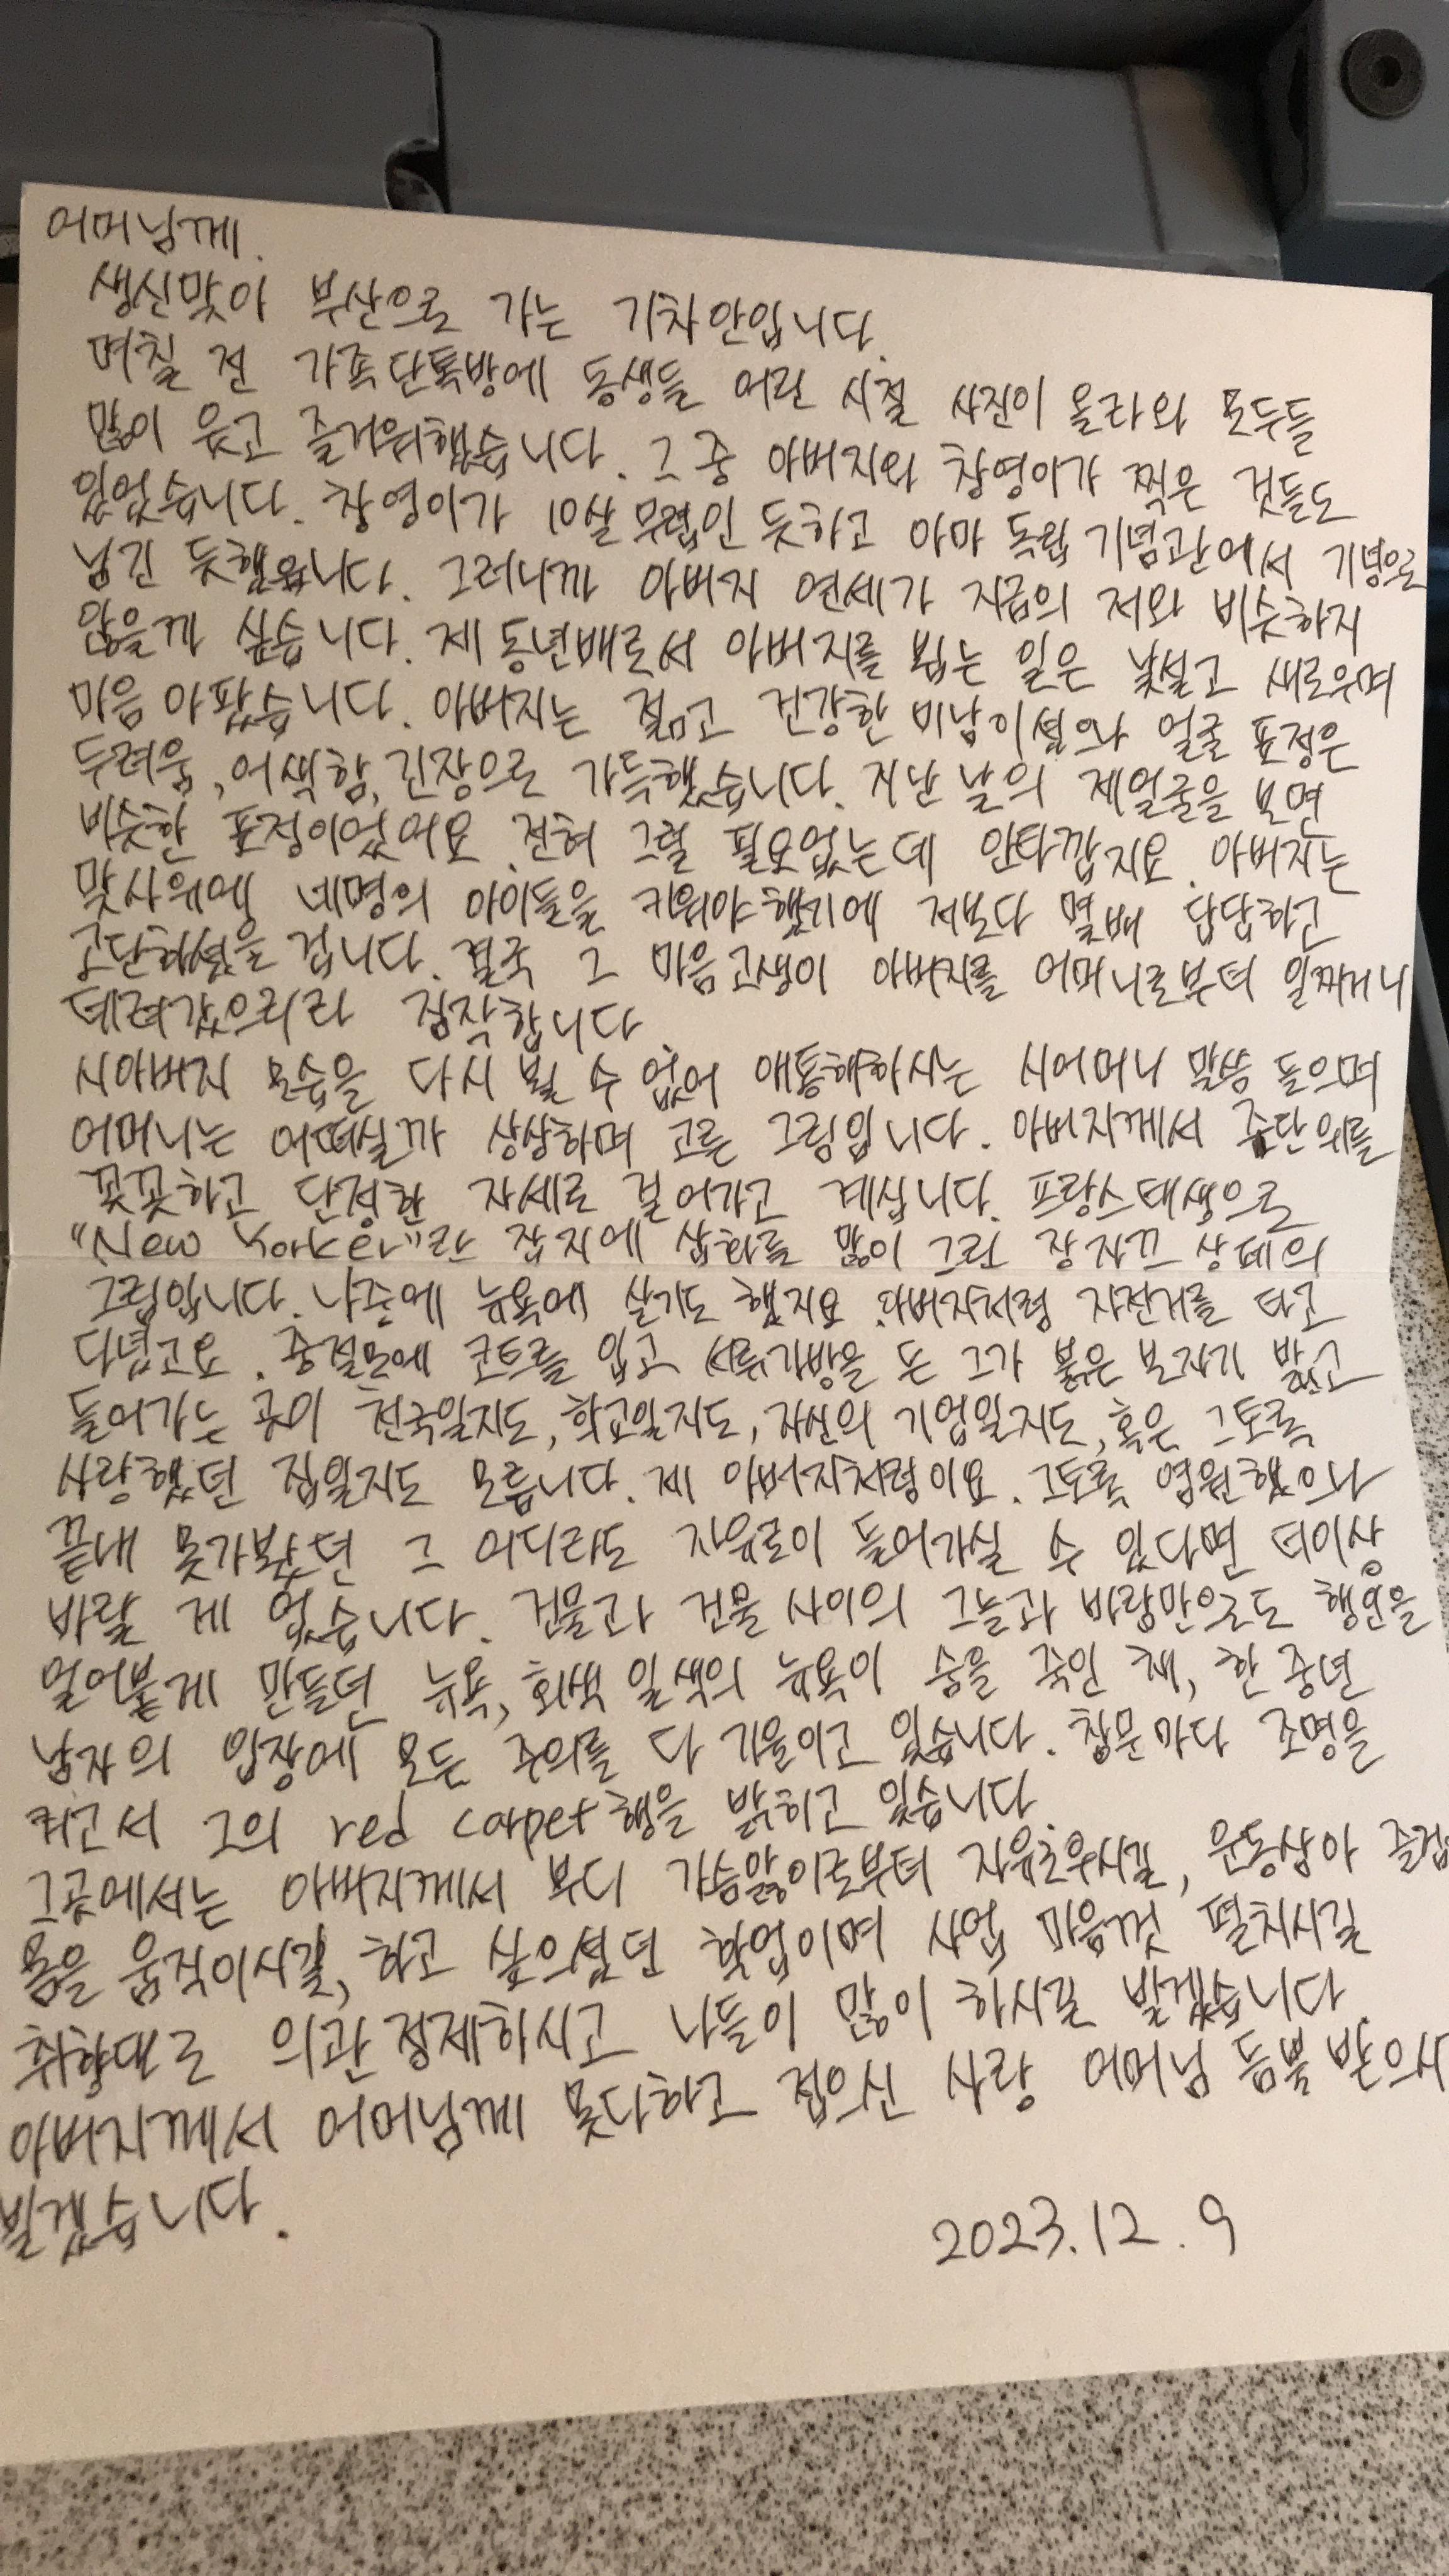 어머님께.
생신맞이 부산으로 가는 기차안입니다.
며칠 전 가족단톡방에 동생들 어린 시절 사진이 올라와 모두들
많이 웃고 즐거워했습니다. 그 중 아버지와 창영이가 찍은 것들도
있었습니다. 창영이가 10살 무렵인 듯하고 아마 독립기념관에서 기념으로
남긴 듯했습니다. 그러니까 아버지 연세가 지금의 저와 비슷하지
않을까 싶습니다. 제 동년배로서 아버지를 뵙는 일은 낯설고 새로우며
마음 아팠습니다. 아버지는 젊고 건강한 미남이셨으나 얼굴 표정은
두려움, 어색함, 긴장으로 가득했습니다. 지난 날의 제얼굴을 보면
비슷한 표정이었어요. 전혀 그럴 필요없는데 안타깝지요. 아버지는
맞사위에 네명의 아이들을 키워야했기에 저보다 몇배 답답하고
고단하셨을 겁니다. 결국 그 마음고생이 아버지를 어머니로부터 일찌거니
데려갔으리라 짐작합니다
시아버지 모습을 다시 뵐 수 없어 애통해하시는 시어머니 말씀 들으며
어머니는 어떠실까 상상하며 고른 그림입니다. 아버지께서 주단위를
꼿꼿하고 단정한 자세로 걸어가고 계십니다. 프랑스태생으로
"New Yorker"란 잡지에 삽화를 많이 그린 장자끄 상페의
그림입니다. 나중에 뉴욕에 살기도 했지요. 아버지처럼 자전거를 타고
다녔고요. 중절모에 코트를 입고 서류가방을 든 그가 붉은 보자기 밟고
들어가는 곳이 천국일지도, 학교일지도, 자신의 기업일지도, 혹은 그토록
사랑했던 집일지도 모릅니다. 제 아버지처럼이요. 그토록 염원했으나
끝내 못가봤던 그 어디라도 자유로이 들어가실 수 있다면 더이상
바랄 게 없습니다. 건물과 건물 사이의 그늘과 바람만으로도 행인을
얼어붙게 만들던 뉴욕, 회색 일색의 뉴욕이 숨을 죽인 채, 한 중년
남자의 입장에 모든 주의를 다 기울이고 있습니다. 창문마다 조명을
켜고서 그의 red carpet행을 밝히고 있습니다.
그곳에서는 아버지께서 부디 가슴앓이로부터 자유로우시길, 운동삼아 즐겁
몸을 움직이시길, 하고 싶으셨던 학업이며 사업 마음껏 펼치시길
취향대로 의관정제하시고 나들이 많이 하시길 빌겠습니다.
아버지께서 어머님께 못다하고 접으신 사랑 어머님 듬뿍 받으시
빌겠습니다.
2023.12.9